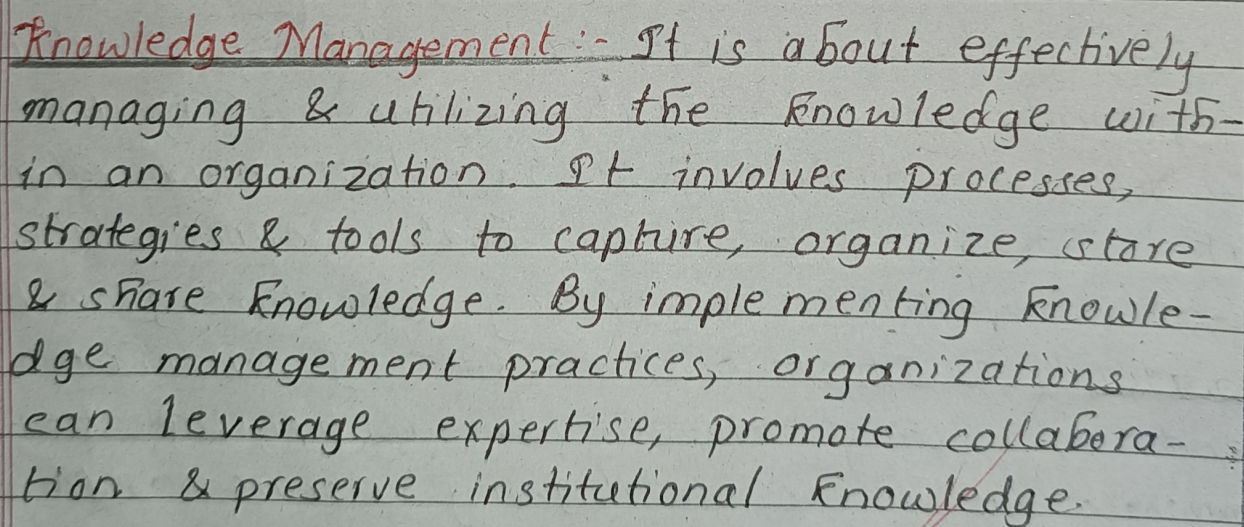 Knowledge Management :- It is about effectively
managing & utilizing the knowledge with-
in an organization. It involves processes,
strategies & tools to capture, organize, store
& share knowledge. By implementing knowle-
dge management practices, organizations
can leverage expertise, promote collabora-
tion & preserve institutional knowledge.